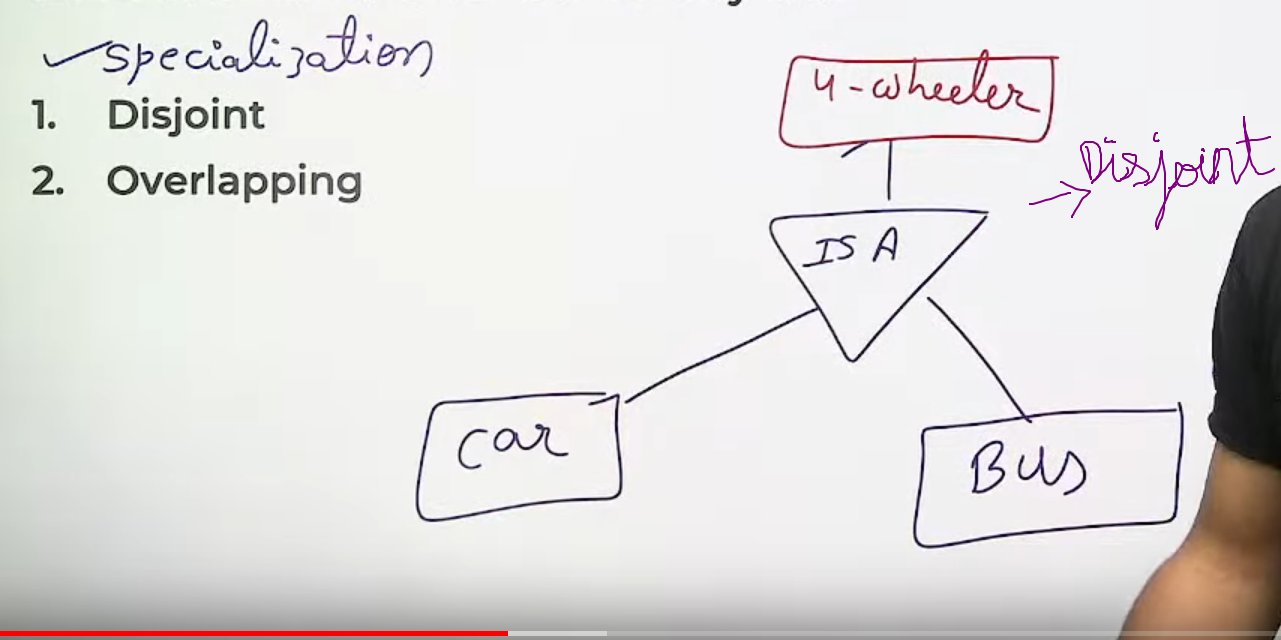 specialization
1. Disjoint
2. Overlapping
4-wheeler
Disjoint
ISA
car
Bus